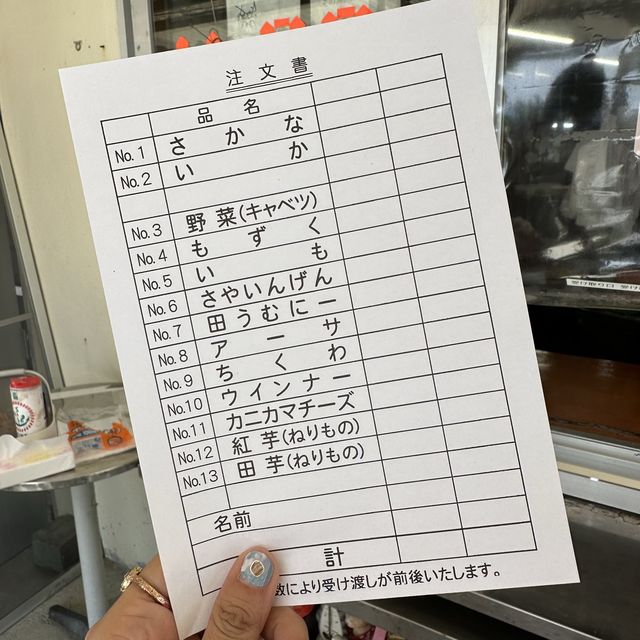 注文書
品名
No.1 さかな
No.2 いか
No.3 野菜(キャベツ)
No.4 もずく
No.5 いも
No.6 さやいんげん
No.7 田うむにー
No.8 アーサ
No.9 ちくわ
No.10 ウインナー
No.11 カニカマチーズ
No.12 紅芋(ねりもの)
No.13 田芋(ねりもの)
名前
計
数により受け渡しが前後いたします。